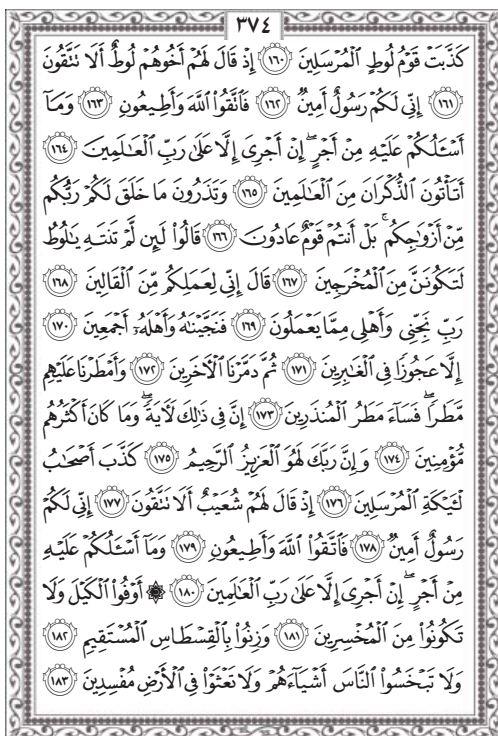 ٣٧٤
كَذَّبَتْ قَوْمُ لُوطٍ ٱلْمُرْسَلِينَ ١٦٠ إِذْ قَالَ لَهُمْ أَخُوهُمْ لُوطٌ أَلَا تَتَّقُونَ
١٦١ إِنِّي لَكُمْ رَسُولٌ أَمِينٌ ١٦٢ فَٱتَّقُوا۟ ٱللَّهَ وَأَطِيعُونِ ١٦٣ وَمَآ
أَسْـَٔلُكُمْ عَلَيْهِ مِنْ أَجْرٍ ۖ إِنْ أَجْرِيَ إِلَّا عَلَىٰ رَبِّ ٱلْعَـٰلَمِينَ ١٦٤
أَتَأْتُونَ ٱلذُّكْرَانَ مِنَ ٱلْعَـٰلَمِينَ ١٦٥ وَتَذَرُونَ مَا خَلَقَ لَكُمْ رَبُّكُم
مِّنْ أَزْوَٰجِكُم ۚ بَلْ أَنتُمْ قَوْمٌ عَادُونَ ١٦٦ قَالُوا۟ لَئِن لَّمْ تَنتَهِ يَـٰلُوطُ
لَتَكُونَنَّ مِنَ ٱلْمُخْرَجِينَ ١٦٧ قَالَ إِنِّي لِعَمَلِكُم مِّنَ ٱلْقَالِينَ ١٦٨
رَبِّ نَجِّنِي وَأَهْلِي مِمَّا يَعْمَلُونَ ١٦٩ فَنَجَّيْنَـٰهُ وَأَهْلَهُۥٓ أَجْمَعِينَ ١٧٠
إِلَّا عَجُوزًا فِي ٱلْغَـٰبِرِينَ ١٧١ ثُمَّ دَمَّرْنَا ٱلْـَٔاخَرِينَ ١٧٢ وَأَمْطَرْنَا عَلَيْهِم
مَّطَرًا ۖ فَسَآءَ مَطَرُ ٱلْمُنذَرِينَ ١٧٣ إِنَّ فِي ذَٰلِكَ لَـَٔايَةً ۖ وَمَا كَانَ أَكْثَرُهُم
مُّؤْمِنِينَ ١٧٤ وَإِنَّ رَبَّكَ لَهُوَ ٱلْعَزِيزُ ٱلرَّحِيمُ ١٧٥ كَذَّبَ أَصْحَـٰبُ
لْـَٔيْكَةِ ٱلْمُرْسَلِينَ ١٧٦ إِذْ قَالَ لَهُمْ شُعَيْبٌ أَلَا تَتَّقُونَ ١٧٧ إِنِّي لَكُمْ
رَسُولٌ أَمِينٌ ١٧٨ فَٱتَّقُوا۟ ٱللَّهَ وَأَطِيعُونِ ١٧٩ وَمَآ أَسْـَٔلُكُمْ عَلَيْهِ
مِنْ أَجْرٍ ۖ إِنْ أَجْرِيَ إِلَّا عَلَىٰ رَبِّ ٱلْعَـٰلَمِينَ ١٨٠ ۞ أَوْفُوا۟ ٱلْكَيْلَ وَلَا
تَكُونُوا۟ مِنَ ٱلْمُخْسِرِينَ ١٨١ وَزِنُوا۟ بِٱلْقِسْطَاسِ ٱلْمُسْتَقِيمِ ١٨٢
وَلَا تَبْخَسُوا۟ ٱلنَّاسَ أَشْيَآءَهُمْ وَلَا تَعْثَوْا۟ فِي ٱلْأَرْضِ مُفْسِدِينَ ١٨٣